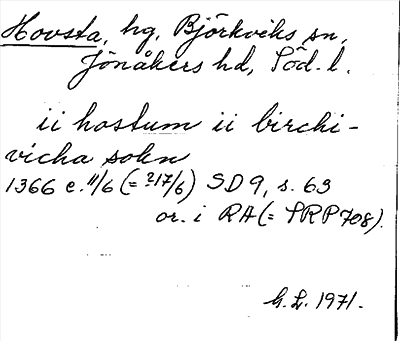 Hovsta, hg, Björkviks sn,
Jönåkers hd, Söd. l.
ii hostum ii birchi-
vicha sokn
1366 e. 11/6 (= ?17/6) SD 9, s. 63
or. i RA (= SRP 708).
G. L. 1971.